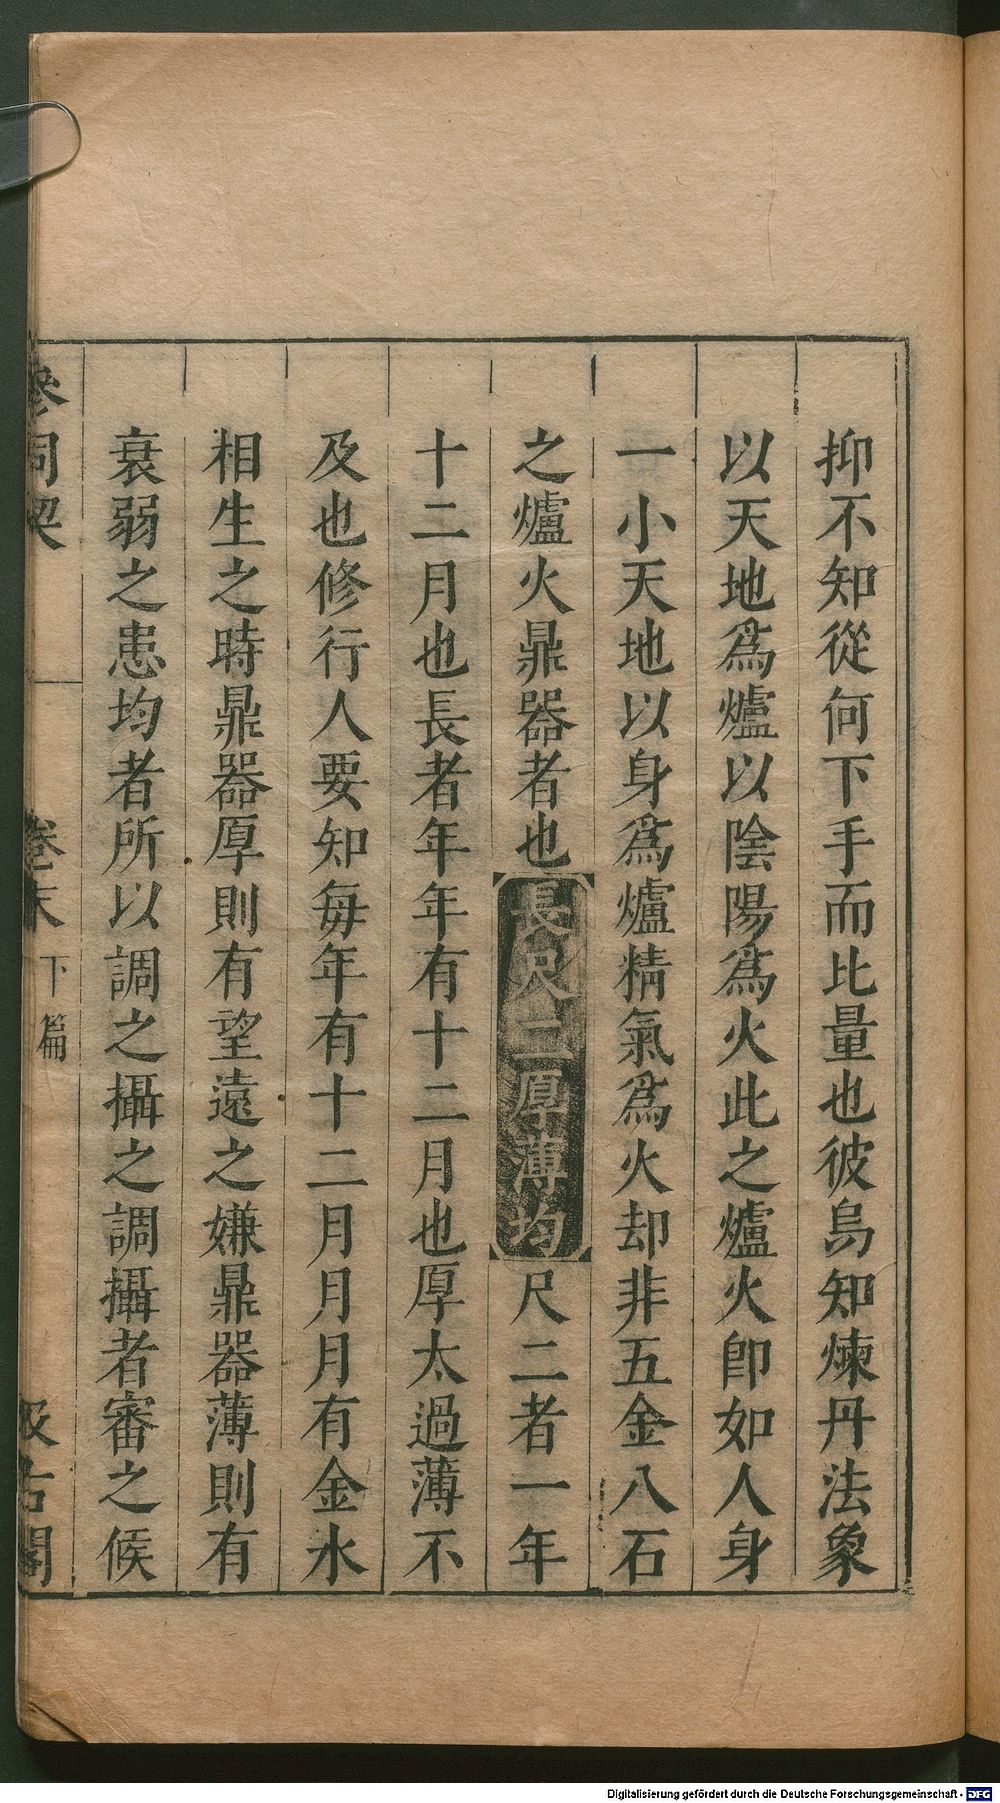 抑不知從何下手而比量也彼烏知煉丹法象
以天地爲爐以陰陽爲火此之爐火卽如人身
一小天地以身爲爐精氣爲火却非五金八石
之爐火鼎器者也長尺二厚薄均尺二者一年
十二月也長者年年有十二月也厚太過薄不
及也修行人要知每年有十二月月有金水
相生之時鼎器厚則有望遠之嫌鼎器薄則有
衰弱之患均者所以調之攝之調攝者審之候
參同契 卷末 下篇 汲古閣
Digitalisierung gefördert durch die Deutsche Forschungsgemeinschaft - DFG